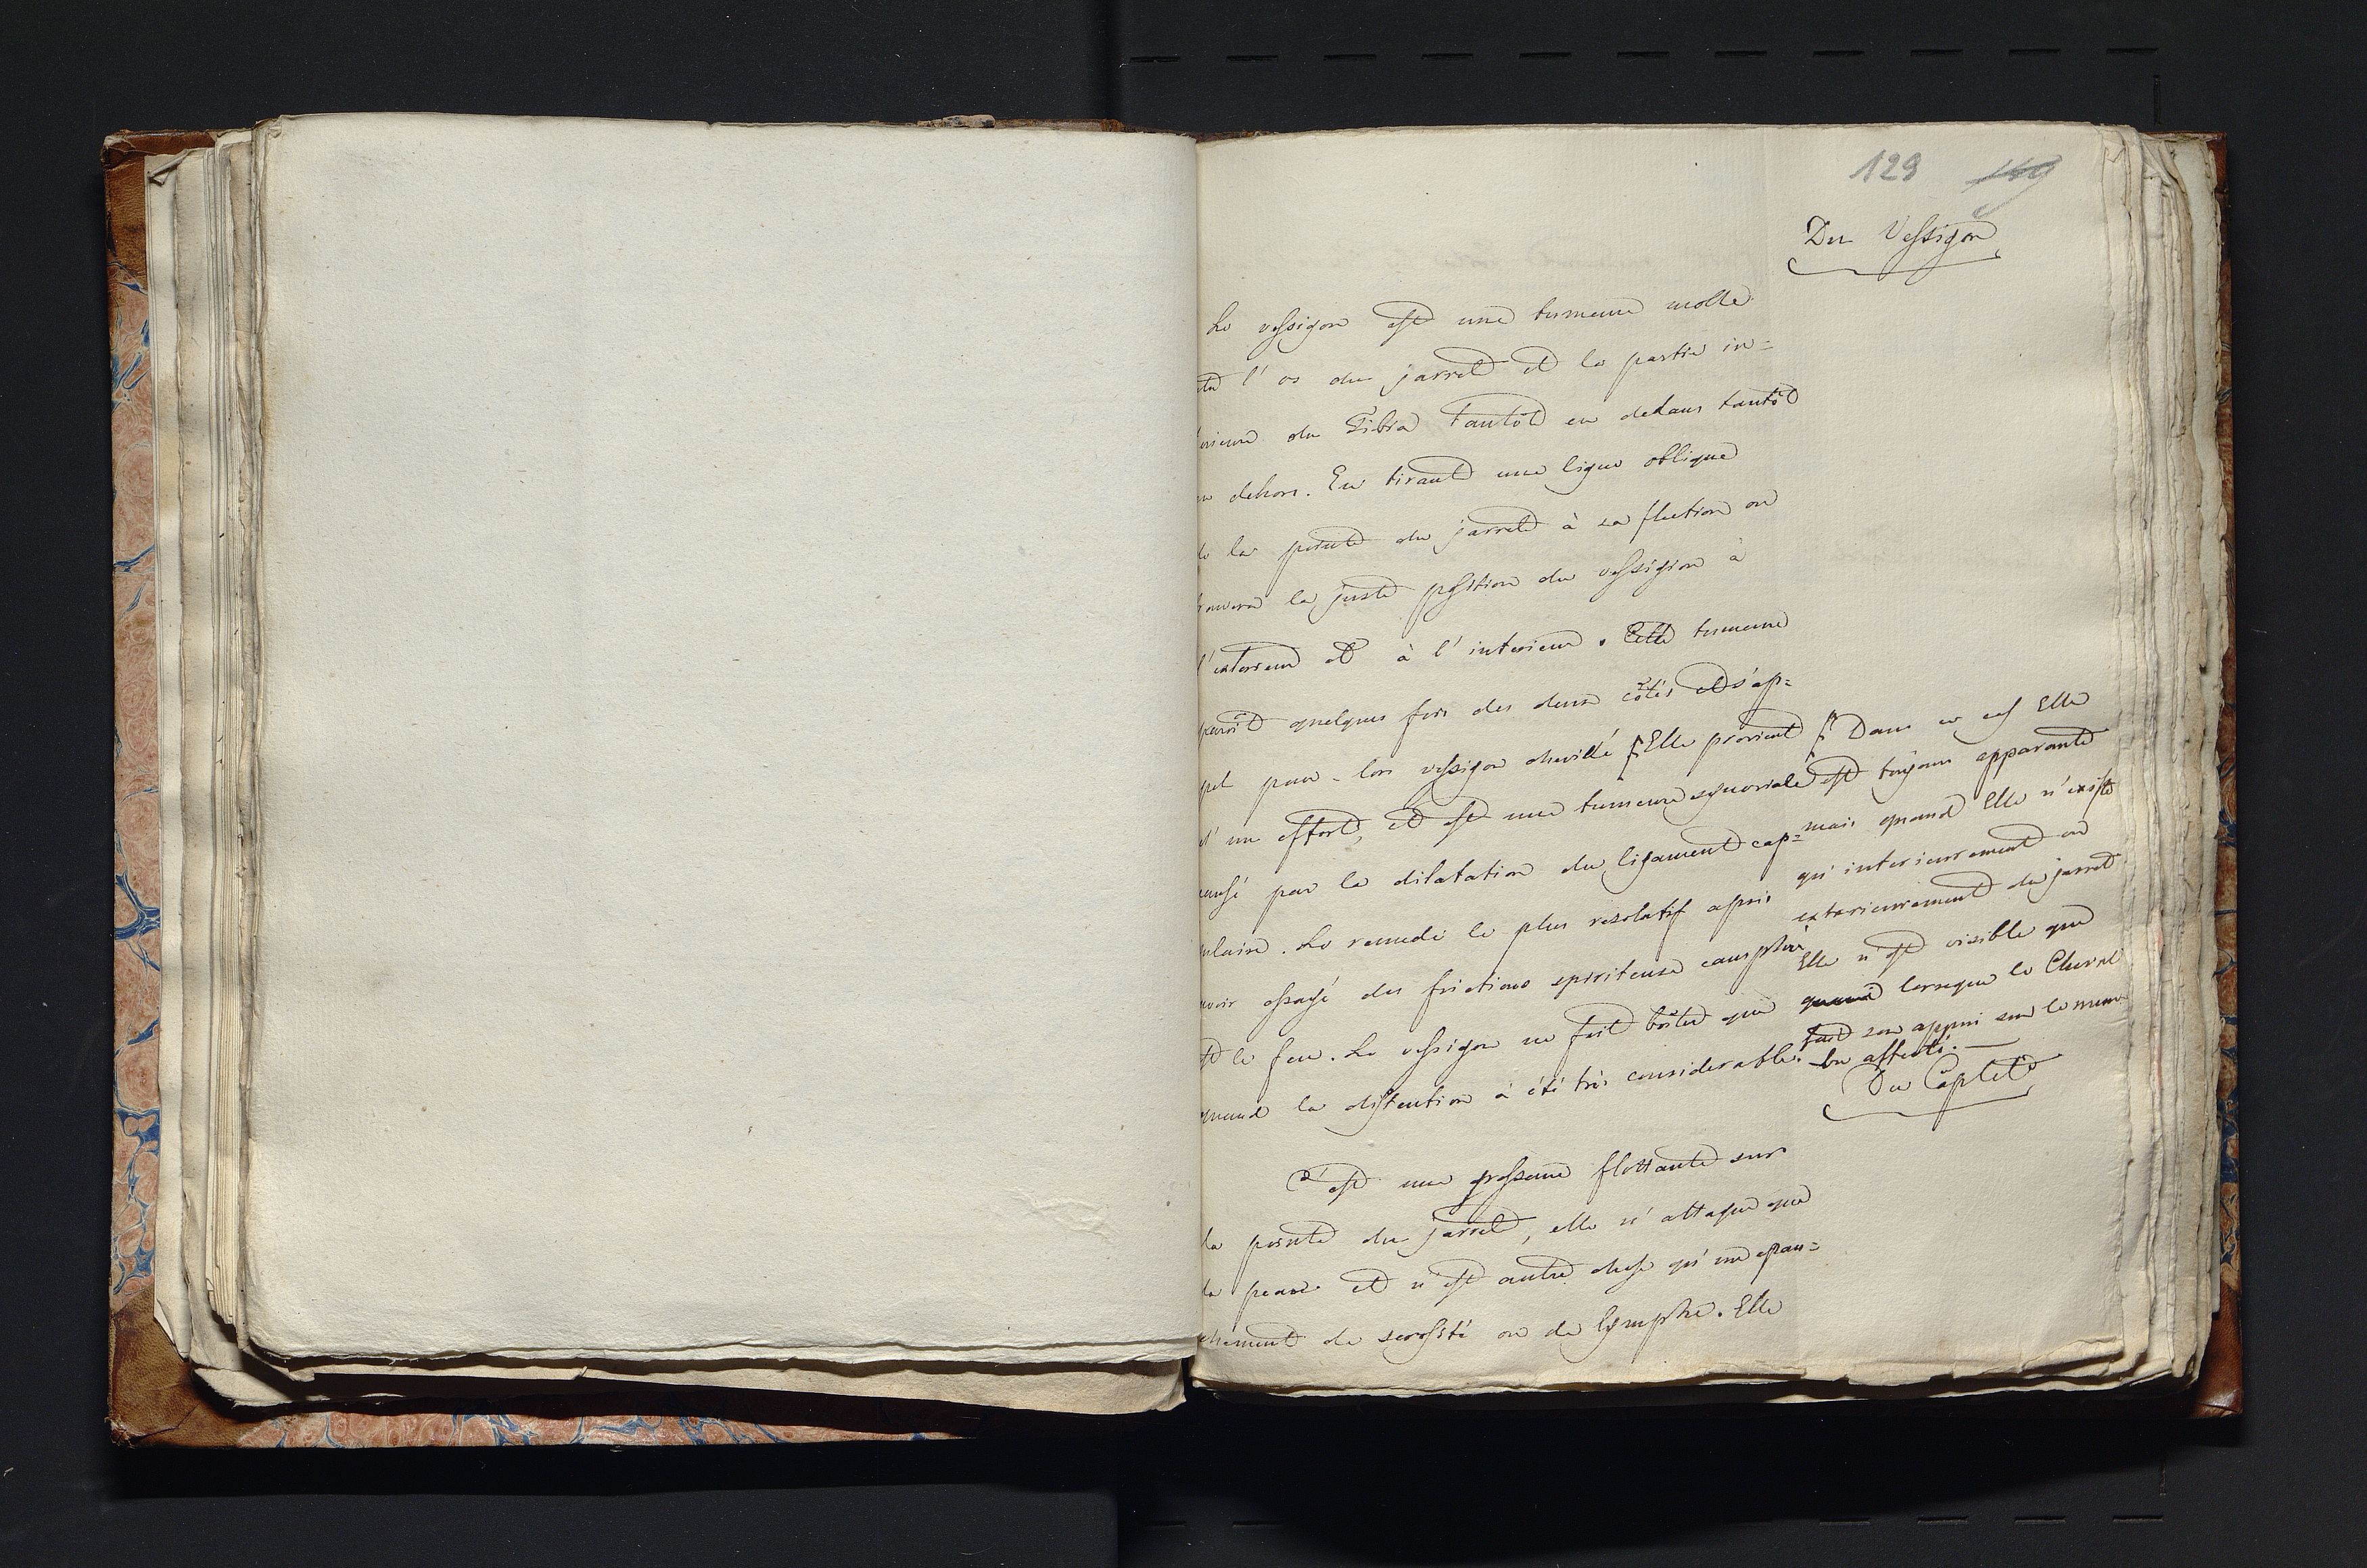 129
Du Vessigon
Le vessigon est une tumeure molle
l'os du jarret et la partie in=
ferieure du Tibia tantôt en dedans tantôt
en dehors. En tirant une ligne oblique
de la pointe du jarret à sa flection on
trouvera la juste position du vessigion à
l'exterieur et à l'interieur. Cette tumeure
paroît quelques fois des deux côtés et s'ap=
pel pour-lors vessigon chevillé Elle provient
d'un effort, et est une tumeure synoviale
causé par la dilatation du ligament cap=
sulaire. Le remede le plus resolatif apris
avoir essayé des frictions spiriteuse camphré
est le feu. Le vessigon ne fait boîter que
quand la distention à été très considerable.
Dans ce cas Elle
est toujours apparante
mais quand Elle n'existe
qu'interieurement ou
exterieurement du jarret
Elle n'est visible que
quand lorsque le Cheval
fait son appui sur le mem=
bre affecté.
Du Caplet
C'est une grosseure flottante sur
la pointe du jarret, elle n'attaque que
la peau et n'est autre chose qu'une epan=
chement de serosité ou de lymphe. Elle